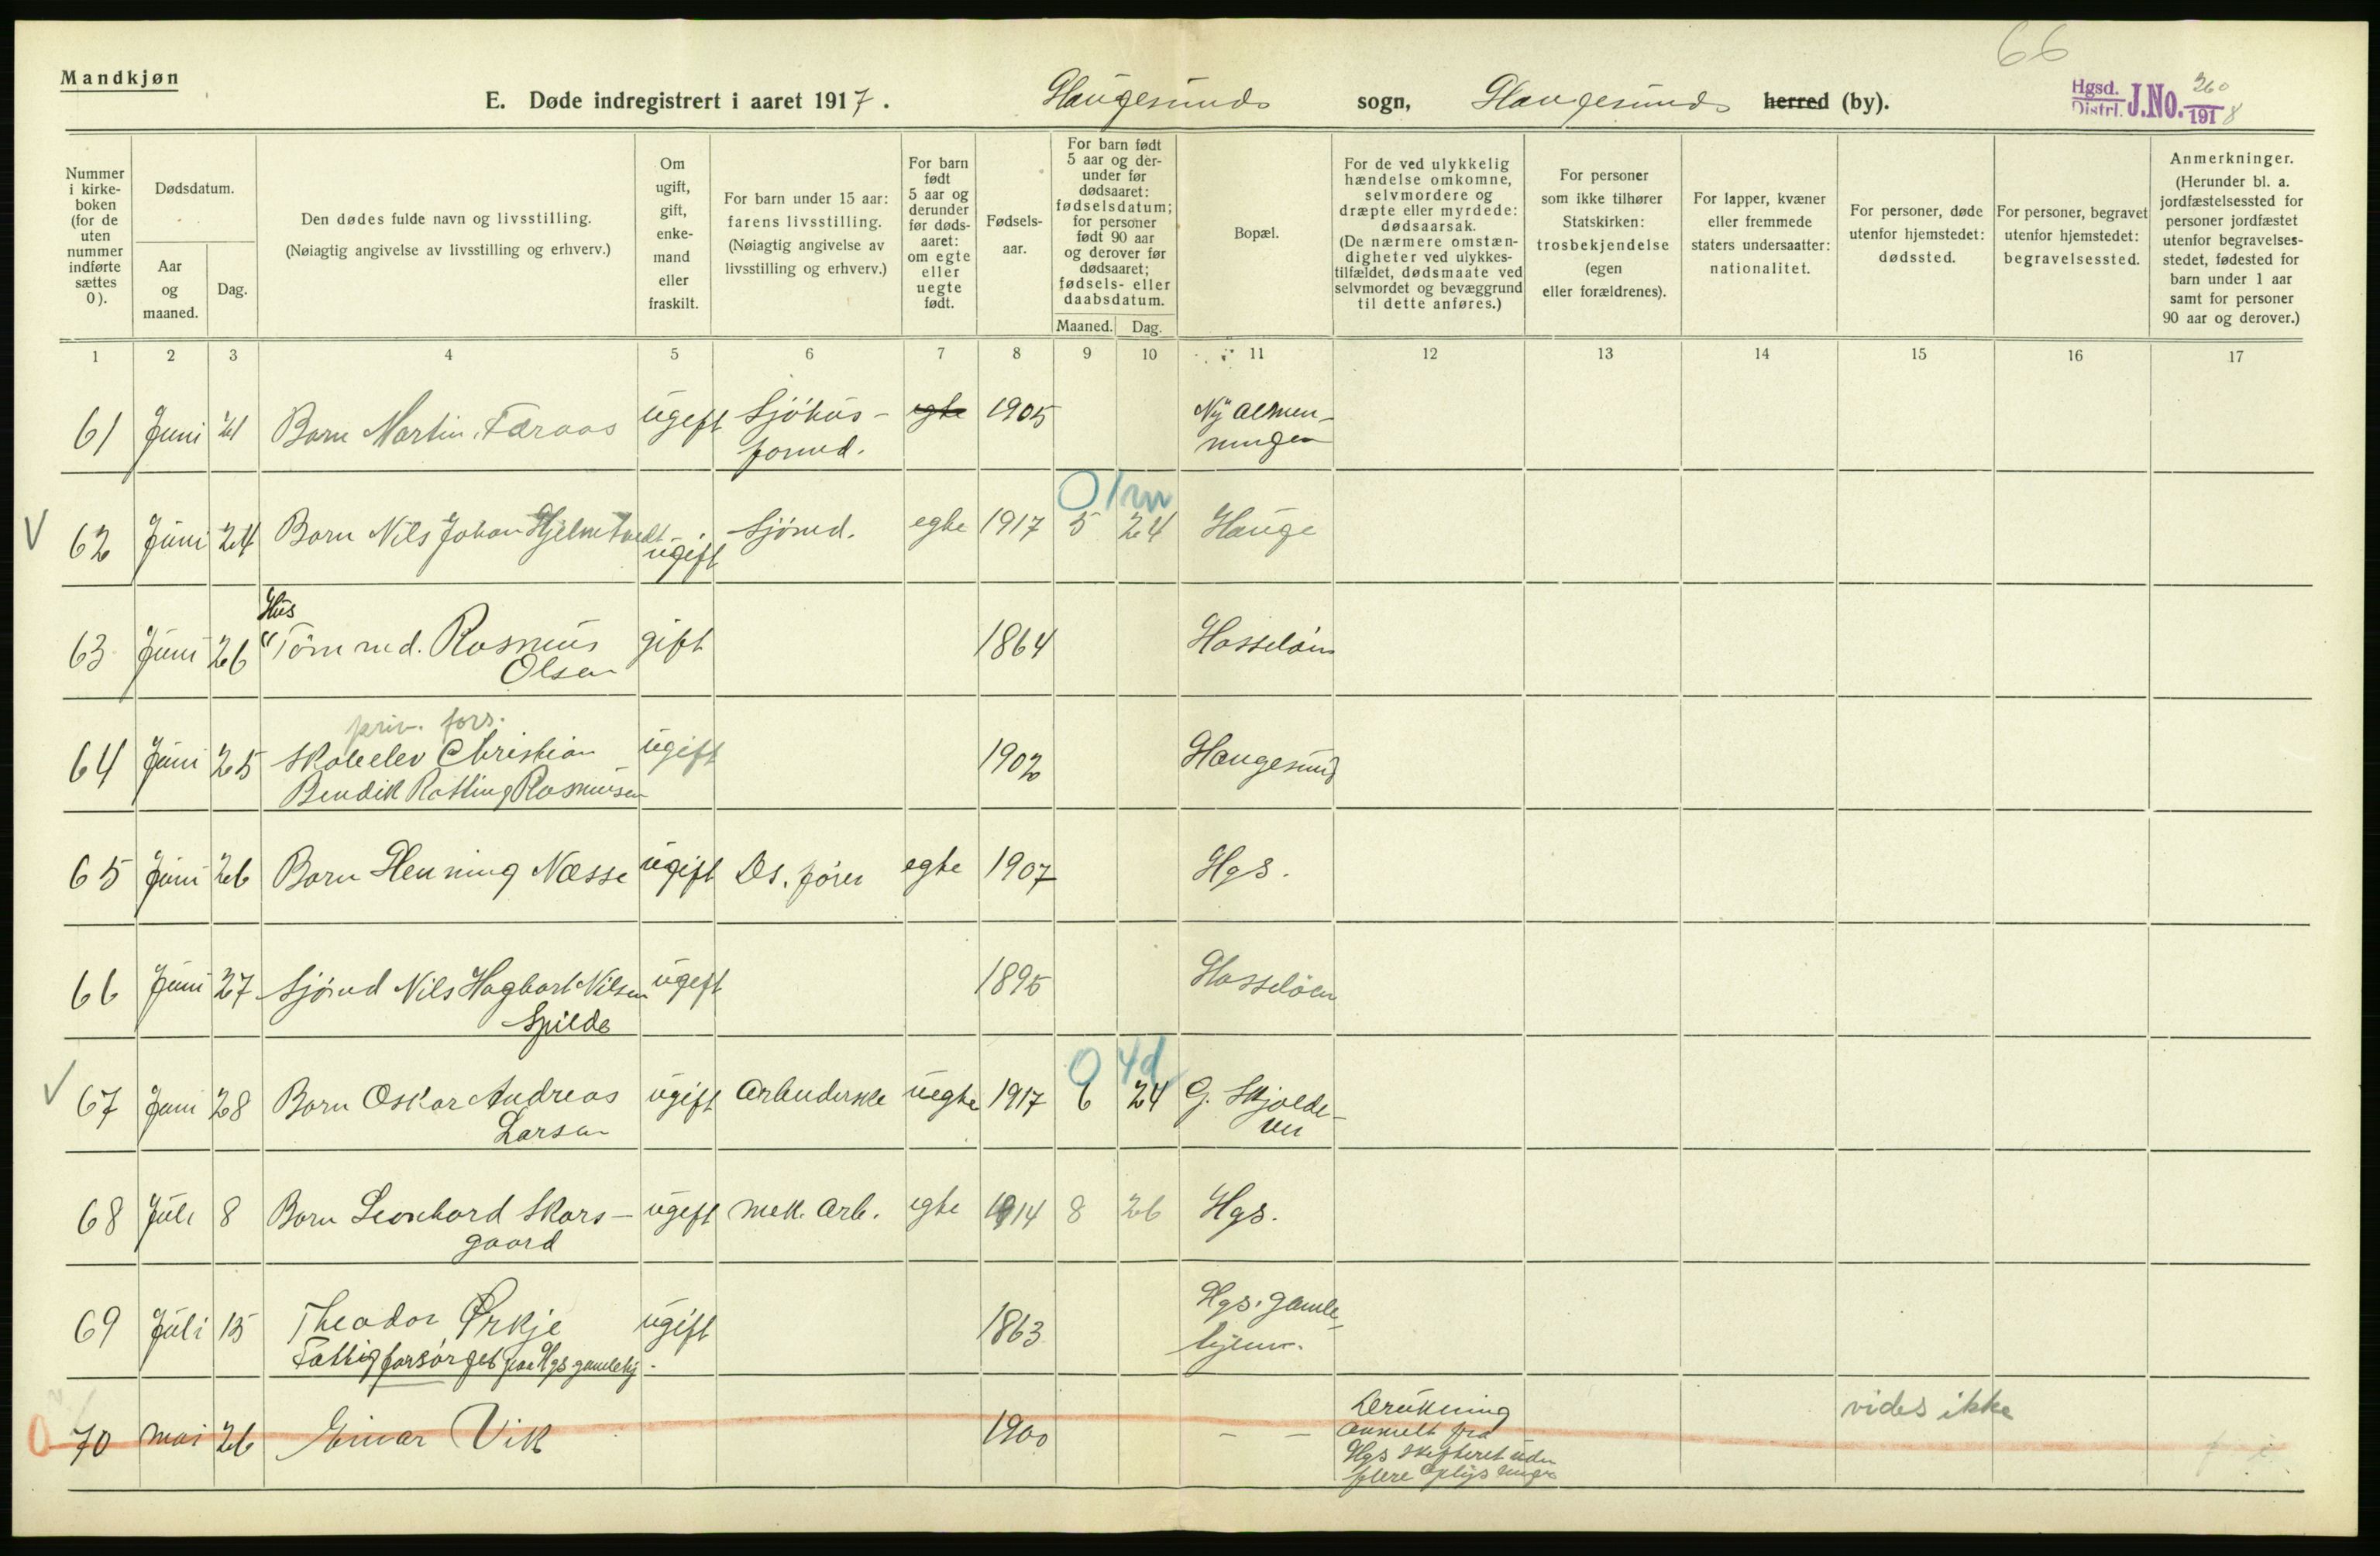 66
Mandkjøn
E. Døde indregistrert i aaret 1917. Haugesunds sogn, Haugesunds herred (by).
Hgsd. Distr. J.No. 260/1918
Nummer i kirke-boken (for de uten nummer indførte sættes 0).
Dødsdatum.
Aar og maaned.
Dag.
Den dødes fulde navn og livsstilling.
(Nøiagtig angivelse av livsstilling og erhverv.)
Om ugift, gift, enke-mand eller fraskilt.
For barn under 15 aar: farens livsstilling.
(Nøiagtig angivelse av livsstilling og erhverv.)
For barn født 5 aar og derunder før døds-aaret: om egte eller uegte født.
Fødsels-aar.
For barn født 5 aar og der-under før dødsaaret: fødselsdatum; for personer født 90 aar og derover før dødsaaret; fødsels- eller daabsdatum.
Maaned. Dag.
Bopæl.
For de ved ulykkelig hændelse omkomne, selvmordere og dræpte eller myrdede: dødsaarsak.
(De nærmere omstæn-digheter ved ulykkes-tilfældet, dødsmaate ved selvmordet og bevæggrund til dette anføres.)
For personer som ikke tilhører Statskirken: trosbekjendelse (egen eller forældrenes).
For lapper, kvæner eller fremmede staters undersaatter: nationalitet.
For personer, døde utenfor hjemstedet: dødssted.
For personer, begravet utenfor hjemstedet: begravelsessted.
Anmerkninger.
(Herunder bl. a. jordfæstelsessted for personer jordfæstet utenfor begravelses-stedet, fødested for barn under 1 aar samt for personer 90 aar og derover.)
1 2 3 4 5 6 7 8 9 10 11 12 13 14 15 16 17
61 Juni 21 Barn Martin Færaas ugift Sjöhus- egte 1905 Ny almen-
formd. ningen
0 1m
V 62 Juni 24 Barn Nils Johan Hjelmtvedt ugift Sjömd. egte 1917 5 24 Hauge
Hus
63 Juni 26 "Tömmd. Rasmus gift 1864 Hasselöen
Olsen
priv. fors.
64 Juni 25 Skoleelev Christian ugift 1902 Haugesund
Bendik Rotting Rasmussen
65 Juni 26 Barn Henning Næsse ugift Ds. förer egte 1907 Hgs.
66 Juni 27 Sjömd Nils Hagbart Nilsen ugift 1895 Hasselöen
Spilde
0 4d
V 67 Juni 28 Barn Oskar Andreas ugift Arbeiderske uegte 1917 6 24 G. Skjolda-
Larsen vei
68 Juli 8 Barn Leonhard Skars- ugift mek. Arb. egte 1914 8 26 Hgs.
gaard
69 Juli 15 Theodor Ørkje ugift 1863 Hgs. gamle-
Fattigforsörget paa Hgs gamlehj. hjem.
0 70 mai 26 Einar Vik 1900 - - Drukning vides ikke
anmelt fra
Hgs skifteret uden
flere Oplysninger